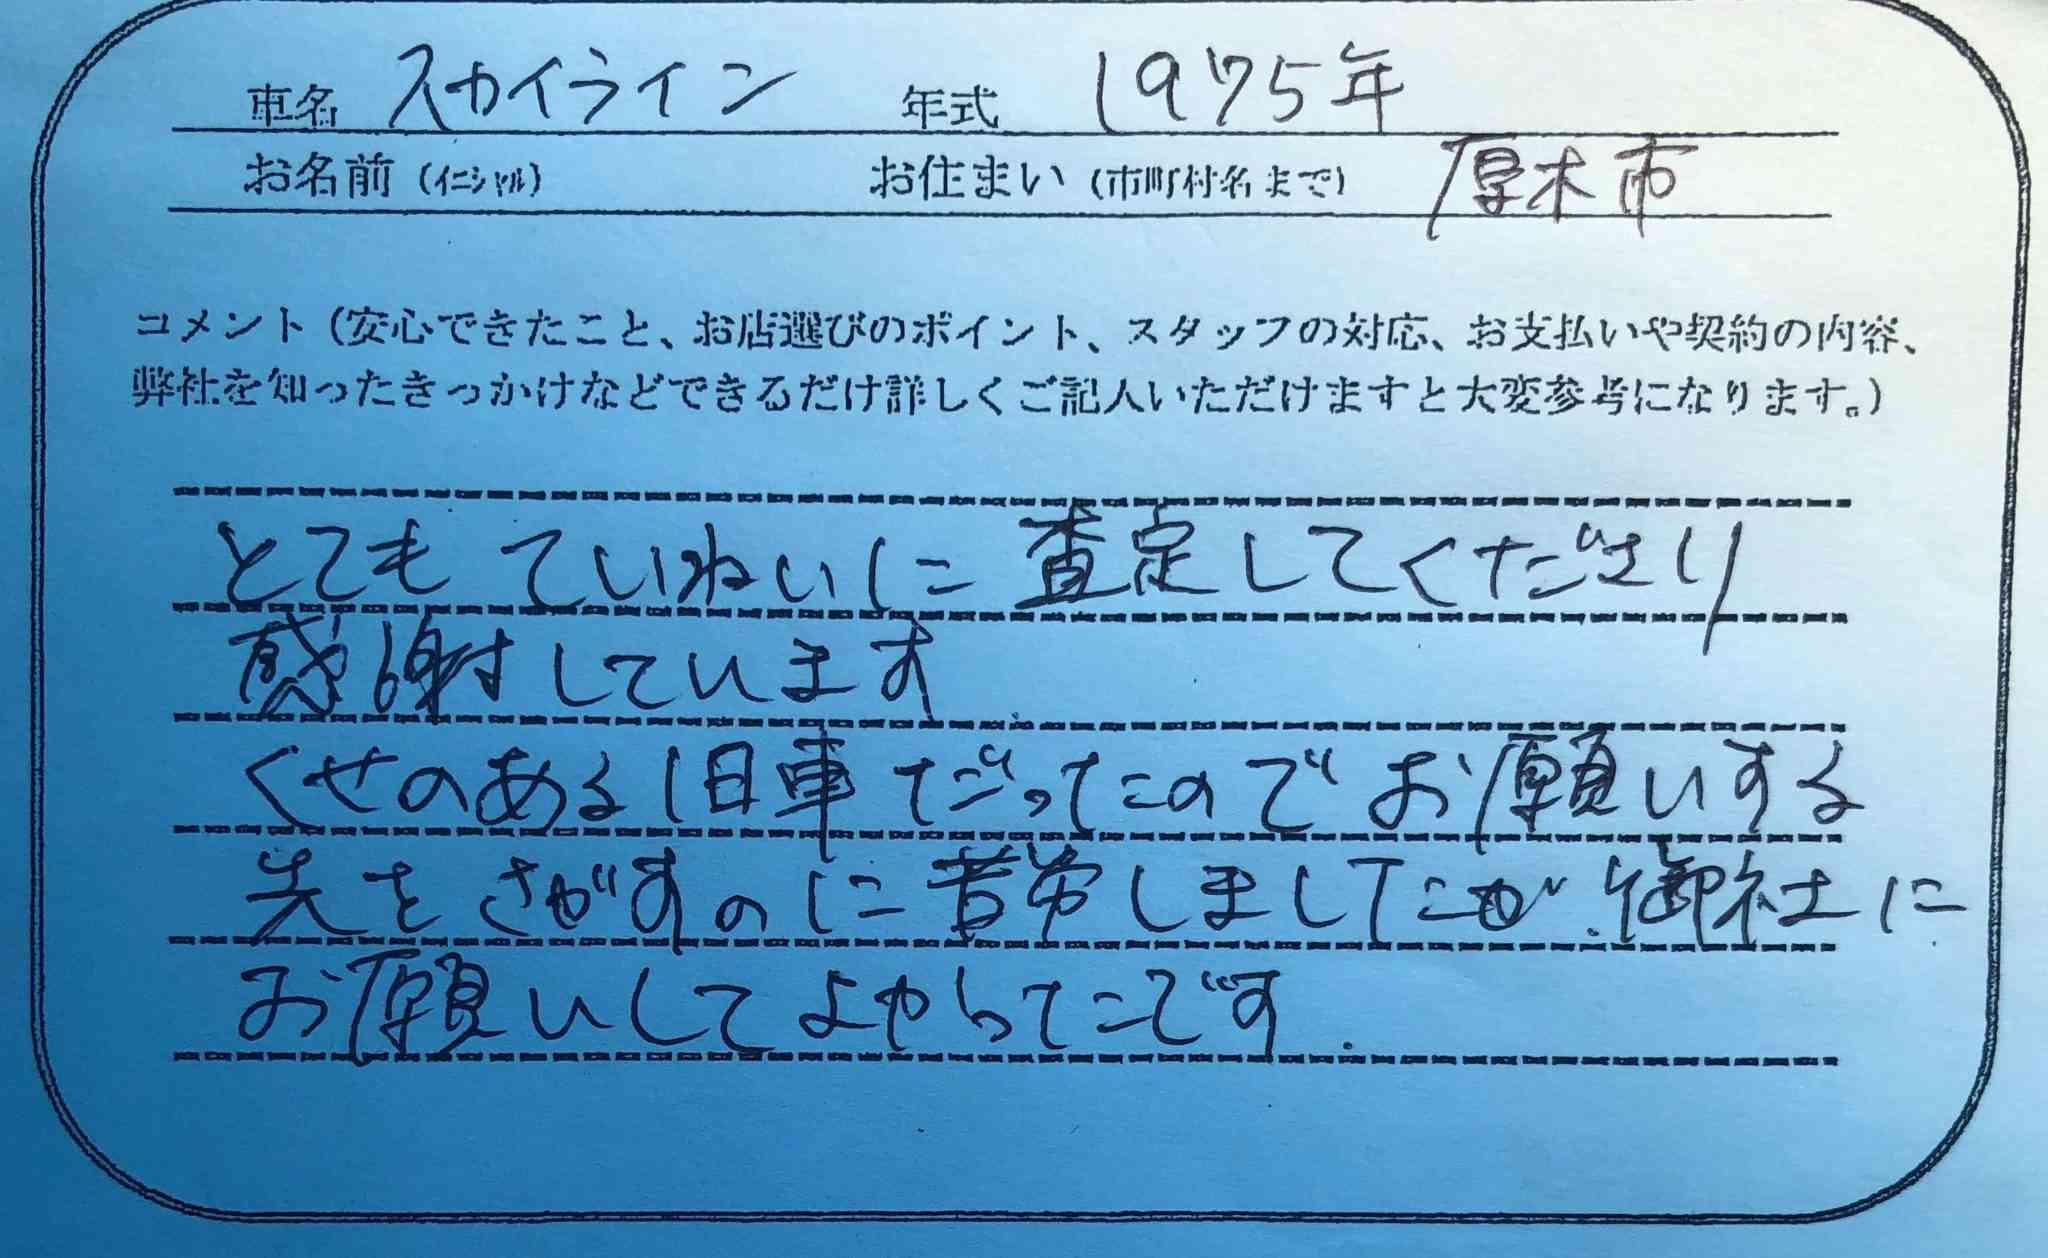 車名 スカイライン 年式 1975年
お名前(イニシャル) お住まい(市町村名まで) 厚木市
コメント(安心できたこと、お店選びのポイント、スタッフの対応、お支払いや契約の内容、
弊社を知ったきっかけなどできるだけ詳しくご記入いただけますと大変参考になります。)
とても ていねいに 査定してくださり
感謝しています.
くせのある旧車だったのでお願いする
先をさがすのに苦労しましたが、御社に
お願いしてよかったです.